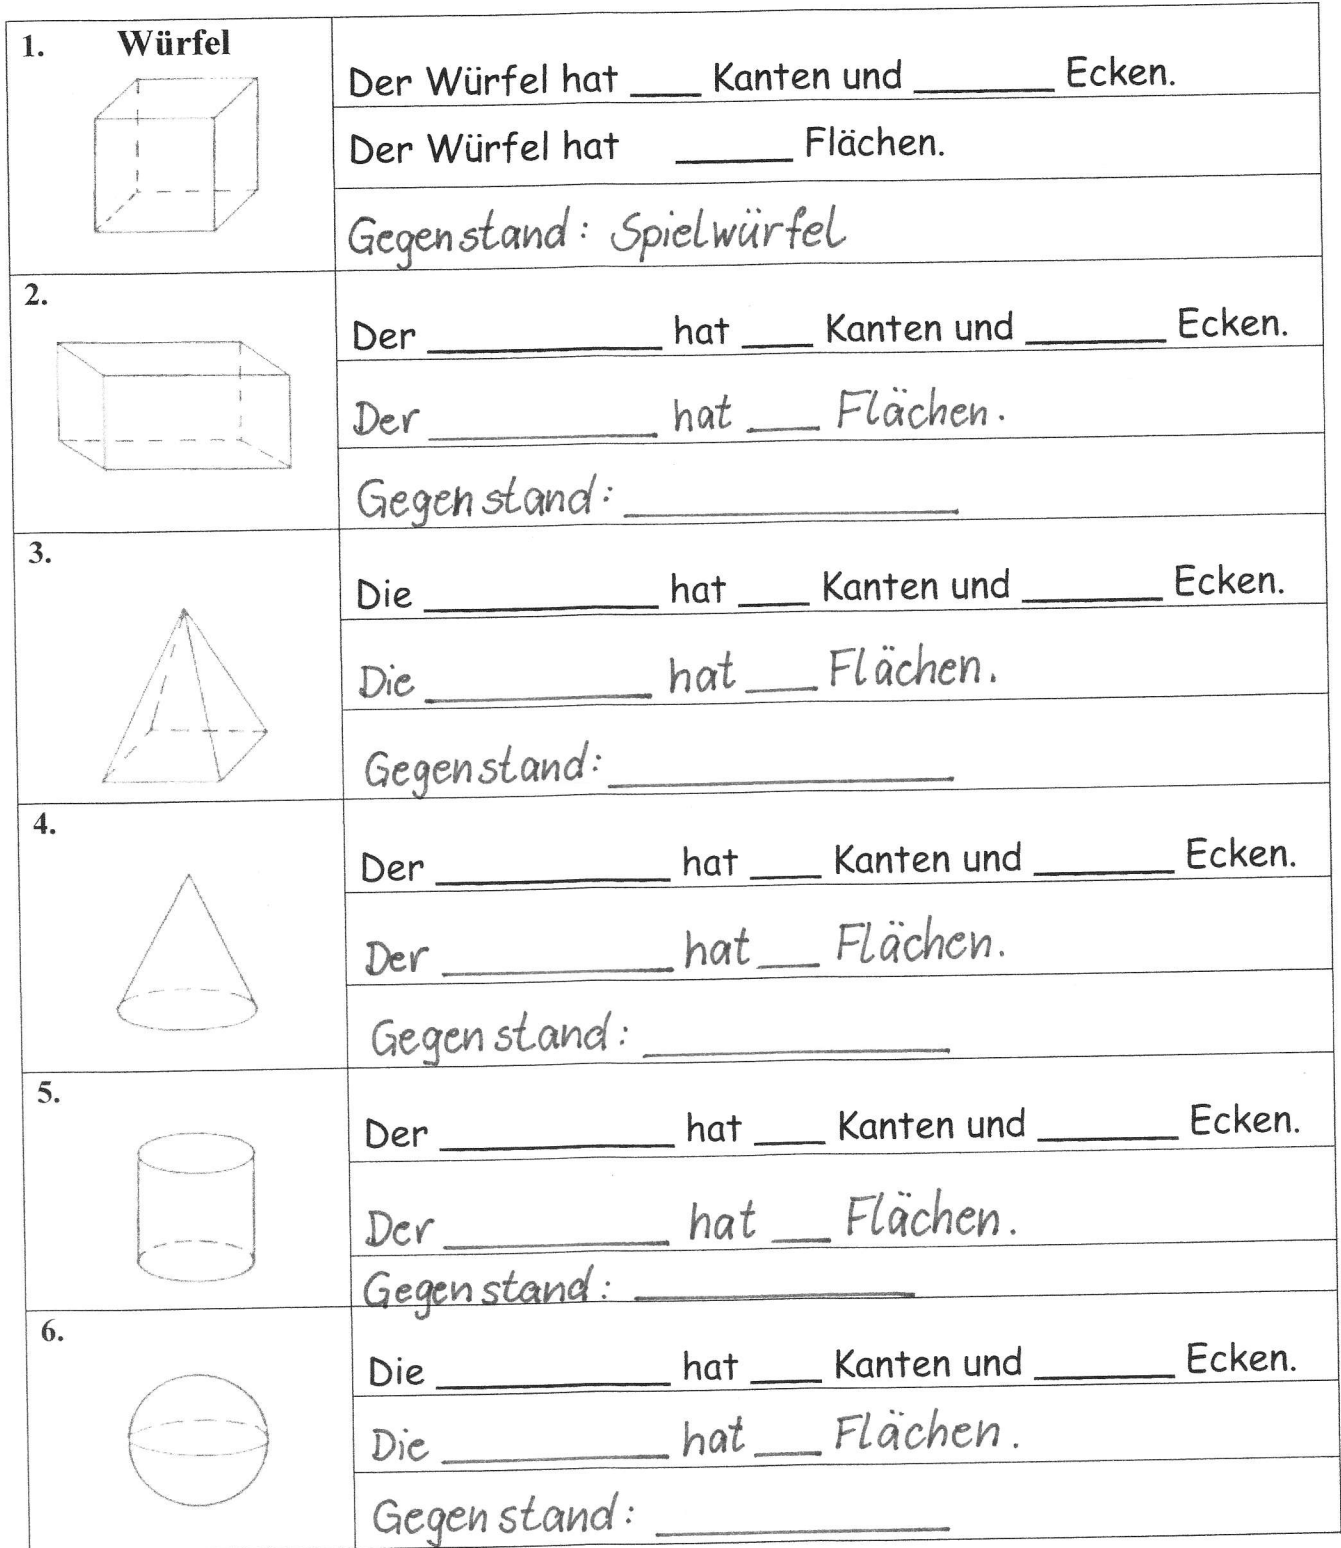 1. Würfel
Der Würfel hat ____ Kanten und ________ Ecken.
Der Würfel hat _______ Flächen.
Gegenstand: Spielwürfel
2.
Der _____________ hat ____ Kanten und ________ Ecken.
Der _____________ hat ____ Flächen.
Gegenstand: ___________________
3.
Die _____________ hat ____ Kanten und ________ Ecken.
Die _____________ hat ____ Flächen.
Gegenstand: ___________________
4.
Der _____________ hat ____ Kanten und ________ Ecken.
Der _____________ hat ____ Flächen.
Gegenstand: ___________________
5.
Der _____________ hat ____ Kanten und ________ Ecken.
Der _____________ hat ____ Flächen.
Gegenstand: ___________________
6.
Die _____________ hat ____ Kanten und ________ Ecken.
Die _____________ hat ____ Flächen.
Gegenstand: ___________________